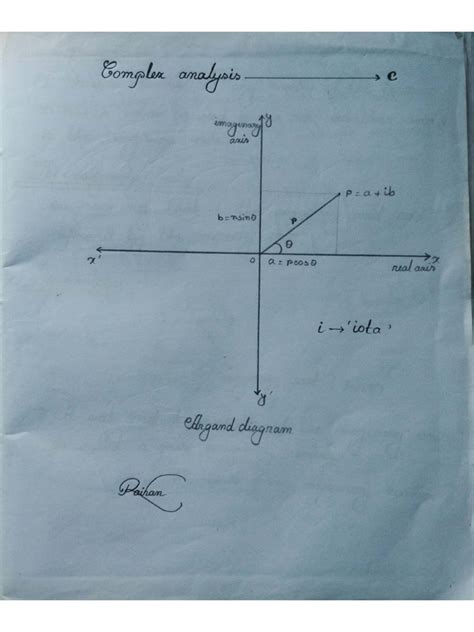 Complex analysis → C
y
imagenary
axis
P = a + ib
b = rsinθ
P
θ
x'
o
a = pcosθ
x
real axis
i → 'iota'
y'
Argand diagram